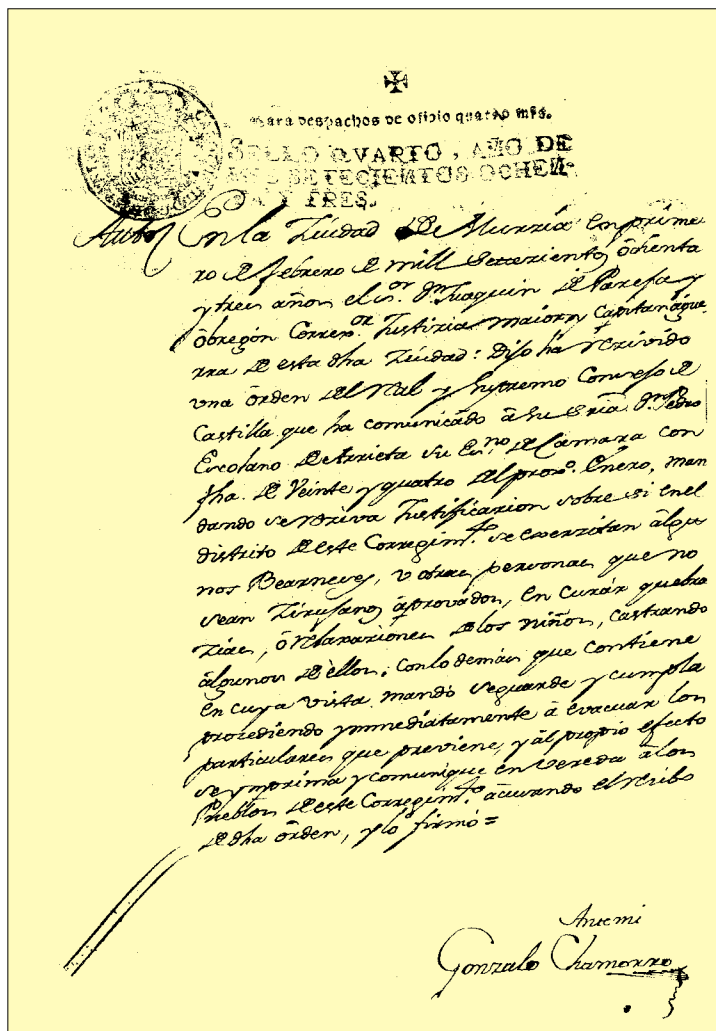 Para despachos de oficio quatro mrs.
SELLO QVARTO, AÑO DE
MIL SETECIENTOS OCHEN-
TA Y TRES.
Auto En la Ziudad de Murzia en prime
ro de febrero de mill setezientos ochenta
y tres años el s.or d.n Juaquin de Pareja y
obregón Correx.or Justizia maior y Capitan aguе
rra de esta dha Ziudad: Dijo ha rezivido
una orden del Rl. y Supremo Consejo de
Castilla que ha comunicado a su Sria. d.n Pedro
Escolano de Arrieta su Es.no de Camara con
fha. de Veinte y quatro del prox.o Enero, man
dando se reziva Justificazion sobre si en el
distrito de este Corregim.to se exerzitan algu
nos Bearneses, u otras personas que no
sean Zirujanos aprovados, en curar quebra
zias, o relaxaziones de los niños, castrando
algunos de ellos: Con lo demas que contiene
en cuya vista mandó se guarde y cumpla
prozediendo ymmediatamente a evacuar los
particulares que previene, y al propio efecto
se ymprima y comunique en vereda a los
Pueblos de este Corregim.to acusando el recibo
de dha orden, y lo firmó =
Antemi
Gonzalo Chamorro